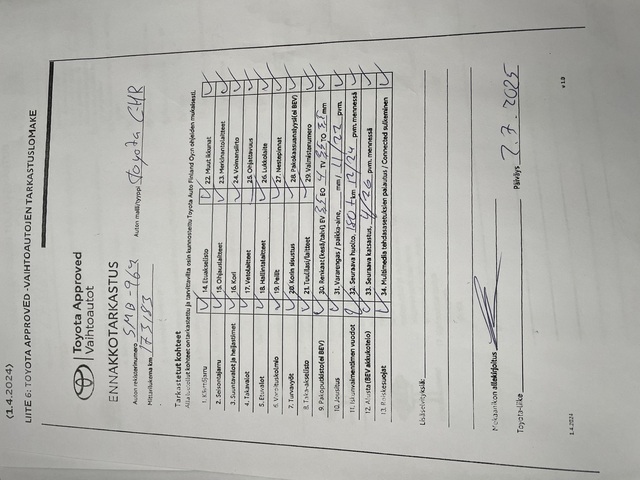 (1.4.2024)
LIITE 6: TOYOTA APPROVED -VAIHTOAUTOJEN TARKASTUSLOMAKE
Toyota Approved
Vaihtoautot
ENNAKKOTARKASTUS
Auton rekisterinumero SMO-963 Auton malli/tyyppi Toyota C-HR
Mittarilukema km 173183
Tarkastetut kohteet
Alla luetellut kohteet on tarkastettu ja tarvittavilta osin kunnostettu Toyota Auto Finland Oy:n ohjeiden mukaisesti.
1. Käsijarru
14. Etuakselisto
22. Muut ikkunat
2. Seisontajarru
15. Ohjauslaitteet
23. Merkinantolaitteet
3. Suuntavalot ja heijastimet
16. Kori
24. Voimansiirto
4. Takavalot
17. Vetolaitteet
25. Ohjattavuus
5. Etuvalot
18. Hallintalaitteet
26. Lukkolaite
6. Varoituskolmio
19. Peilit
27. Nestepinnat
7. Turvavyöt
20. Korin sisustus
28. Pakokaasuanalyysi (ei BEV)
8. Taka-akselisto
21. Tuulilasi/laitteet
29. Valmistenumero
9. Pakoputkisto (ei BEV)
30. Renkaat (kesä/talvi) EV EO TV TO mm
10. Jousitus
31. Vararengas / paikka-aine, mm 11/22 pvm.
11. Iskunvaimentimen vuodot
32. Seuraava huolto, 180 tkm 12/24 pvm. mennessä
12. Alusta (BEV akkukotelo)
33. Seuraava katsastus, 4/26 pvm. mennessä
13. Roiskesuojat
34. Multimedia tehdasasetuksien palautus / Connected sulkeminen
Lisäselvityksiä:
Mekaanikon allekirjoitus
Toyota-liike Päiväys 2.7.2025
1.4.2024 v 1.0